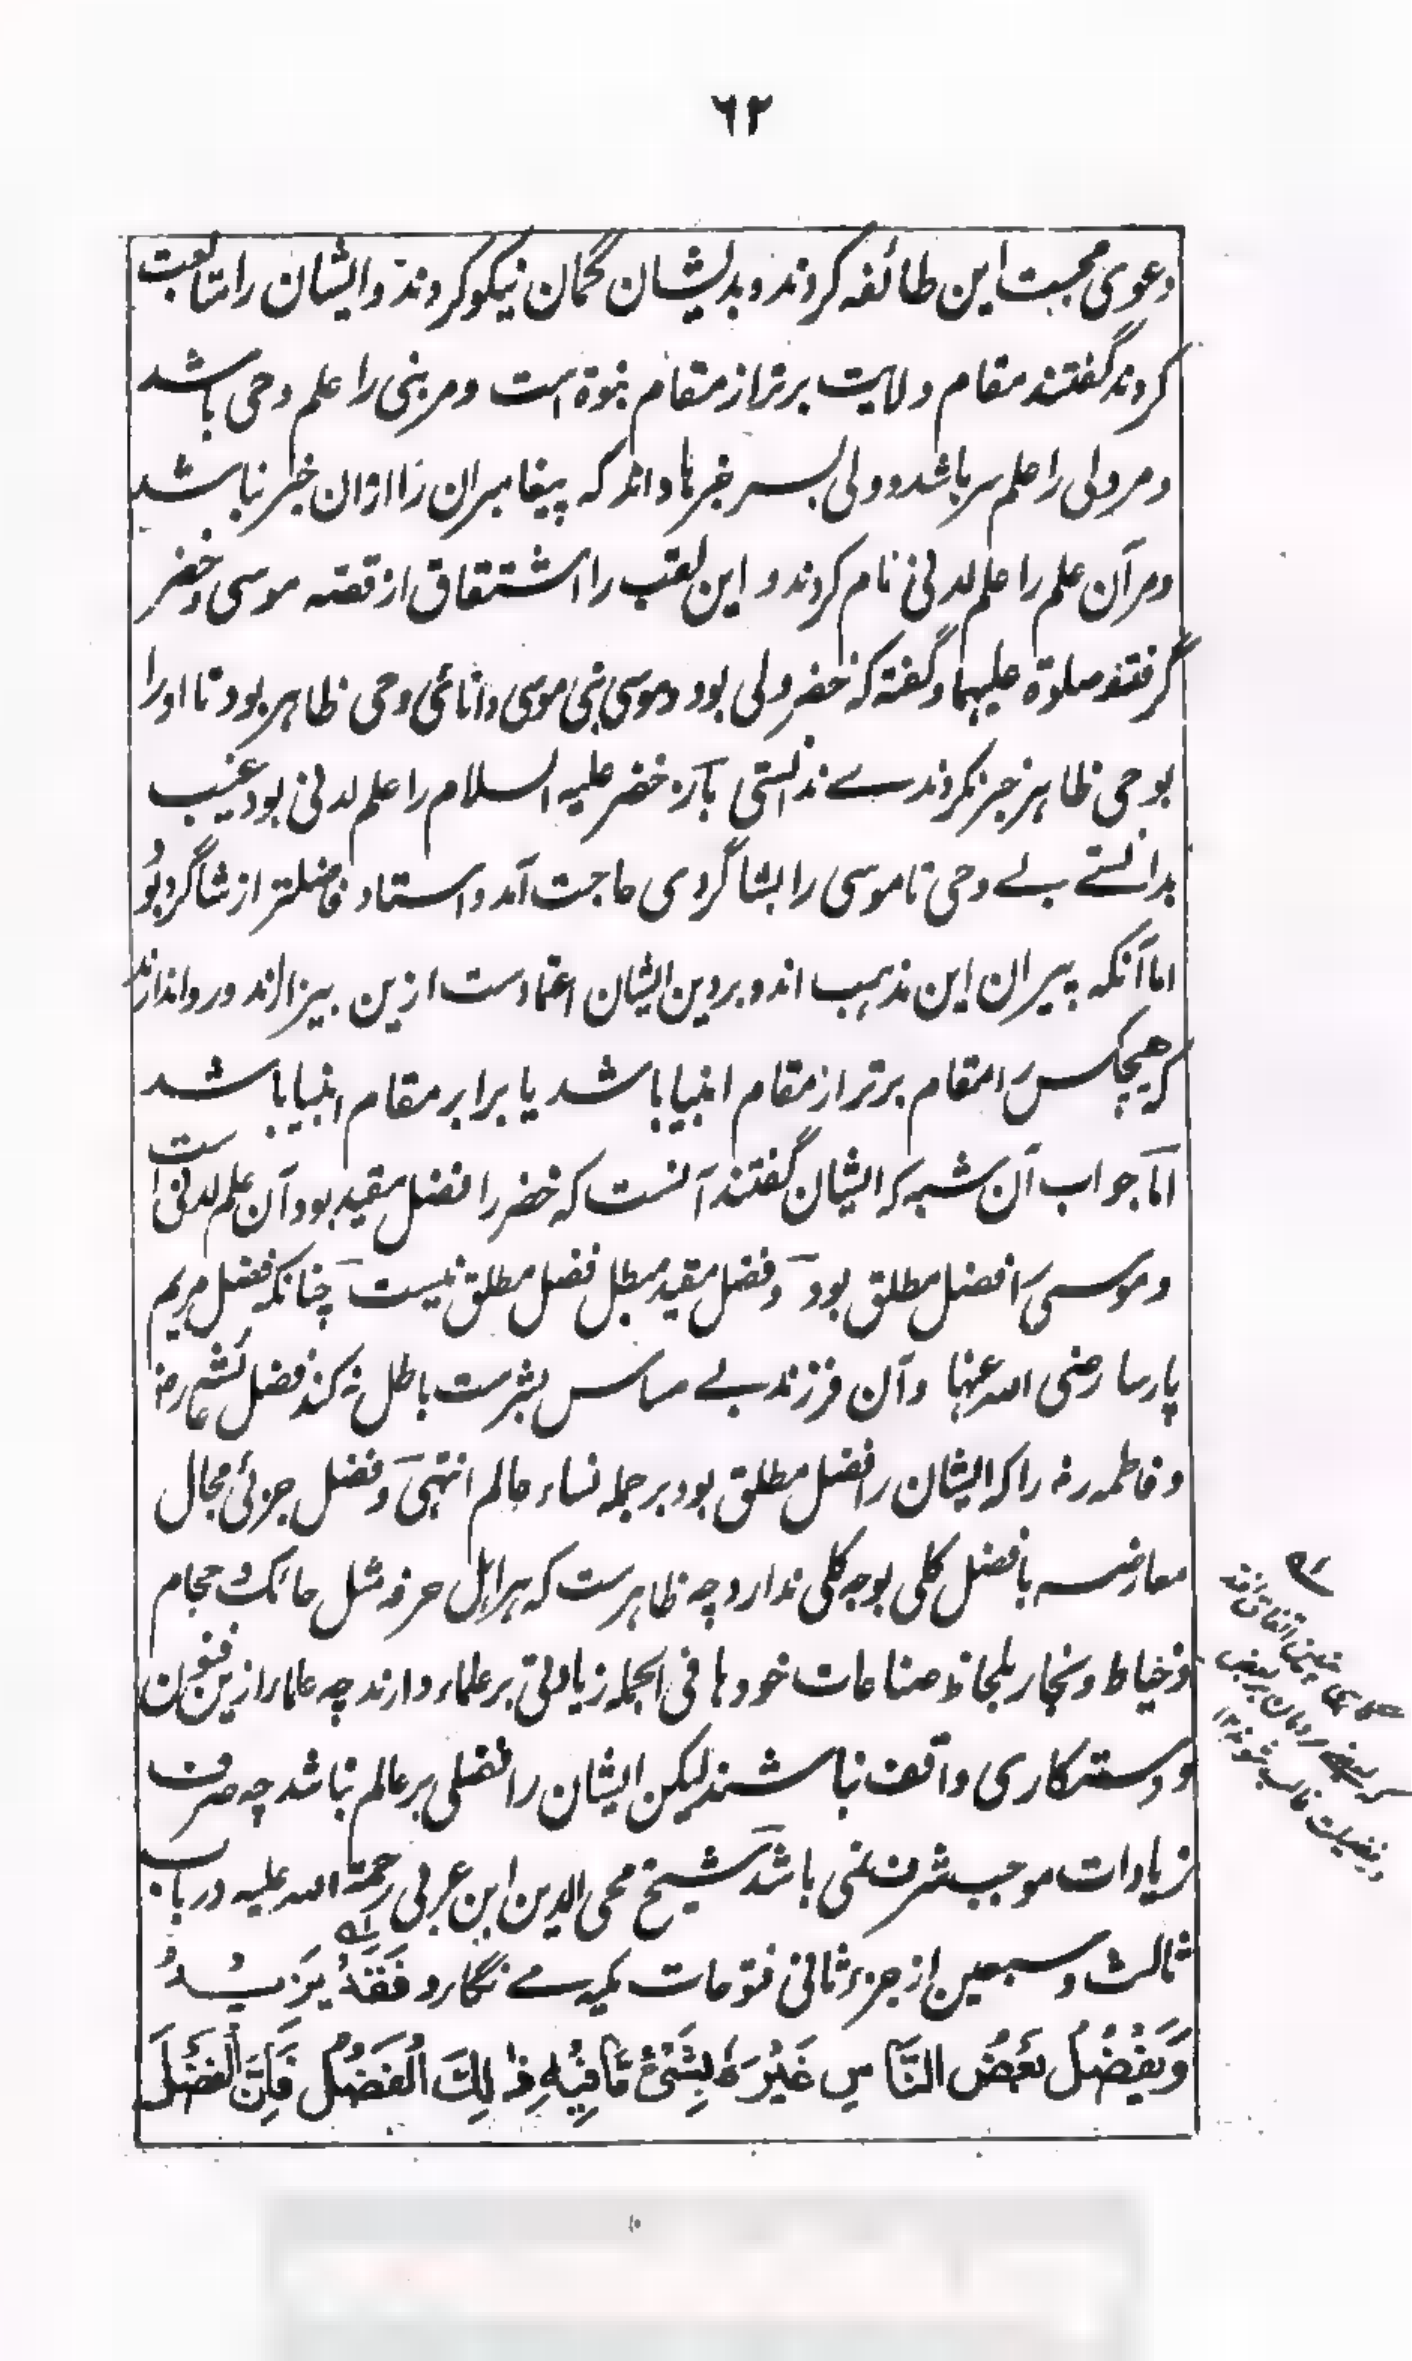 ٦٢
دعوی محبت این طائفه کردند و بدیشان گمان نیکو کردند و ایشان را متابعت
کردند گفتند مقام ولایت برتر از مقام نبوة است و مر نبی را علم وحی باشد
و مر ولی را علم سر باشد و ولی بسر خبرها داند که پیغامبران را ازان خبر نباشد
و مر آن علم را علم لدنی نام کردند و این لقب را اشتقاق از قصه موسی و خضر
گرفتند صلوة علیهما و گفته که خضر ولی بود و موسی نبی موسی دانائی وحی ظاهر بود تا او را
بوحی ظاهر خبر نکردندے ندانستی باز خضر علیه السلام را علم لدنی بود غیب
بدانستے بے وحی تا موسی را بشاگردی حاجت آمد و استاد فاضلتر از شاگرد بُوَد
اما آنکه پیران این مذهب اند و بر دین ایشان اعتمادست ازین بیزارند و روا ندارند
که هیچکس را مقام برتر از مقام انبیا باشد یا برابر مقام انبیا باشد
اما جواب آن شبه که ایشان گفتند آنست که خضر را فضل مقید بود آن علم لدنی است
و موسی را فضل مطلق بود و فضل مقید مبطل فضل مطلق نیست چنانکه فضل مریم
پارسا رضی الله عنها و آن فرزند بے مساس بشرست باطل نه کند فضل عائشه رض
و فاطمه رض را که ایشان را فضل مطلق بود بر جمله نساء عالم انتهی و فضل جزئی مجال
معارضه با فضل کلی بوجه کلی ندارد چه ظاهرست که هر اهل حرفه مثل حائک و حجام
و خیاط و نجار بلحاظ صناعات خودها فی الجمله زیادتی بر علماء دارند چه علما را ازین فنون
و دستکاری واقف نباشند لیکن ایشان را فضلی بر عالم نباشد چه صرف
زیادات موجب شرف نمی باشد شیخ محی الدین ابن عربی رحمة الله علیه در باب
ثالث و سبعین از جزء ثانی فتوحات مکیه مے نگارد فَقَدْ يَزِيْدُ
وَيَفْضُلُ بَعْضُ النَّاسِ غَيْرَهٗ بِشَيْءٍ مَا فِيْهِ ذٰلِكَ الْفَضْلُ فَاِنَّ الْفَضْلَ